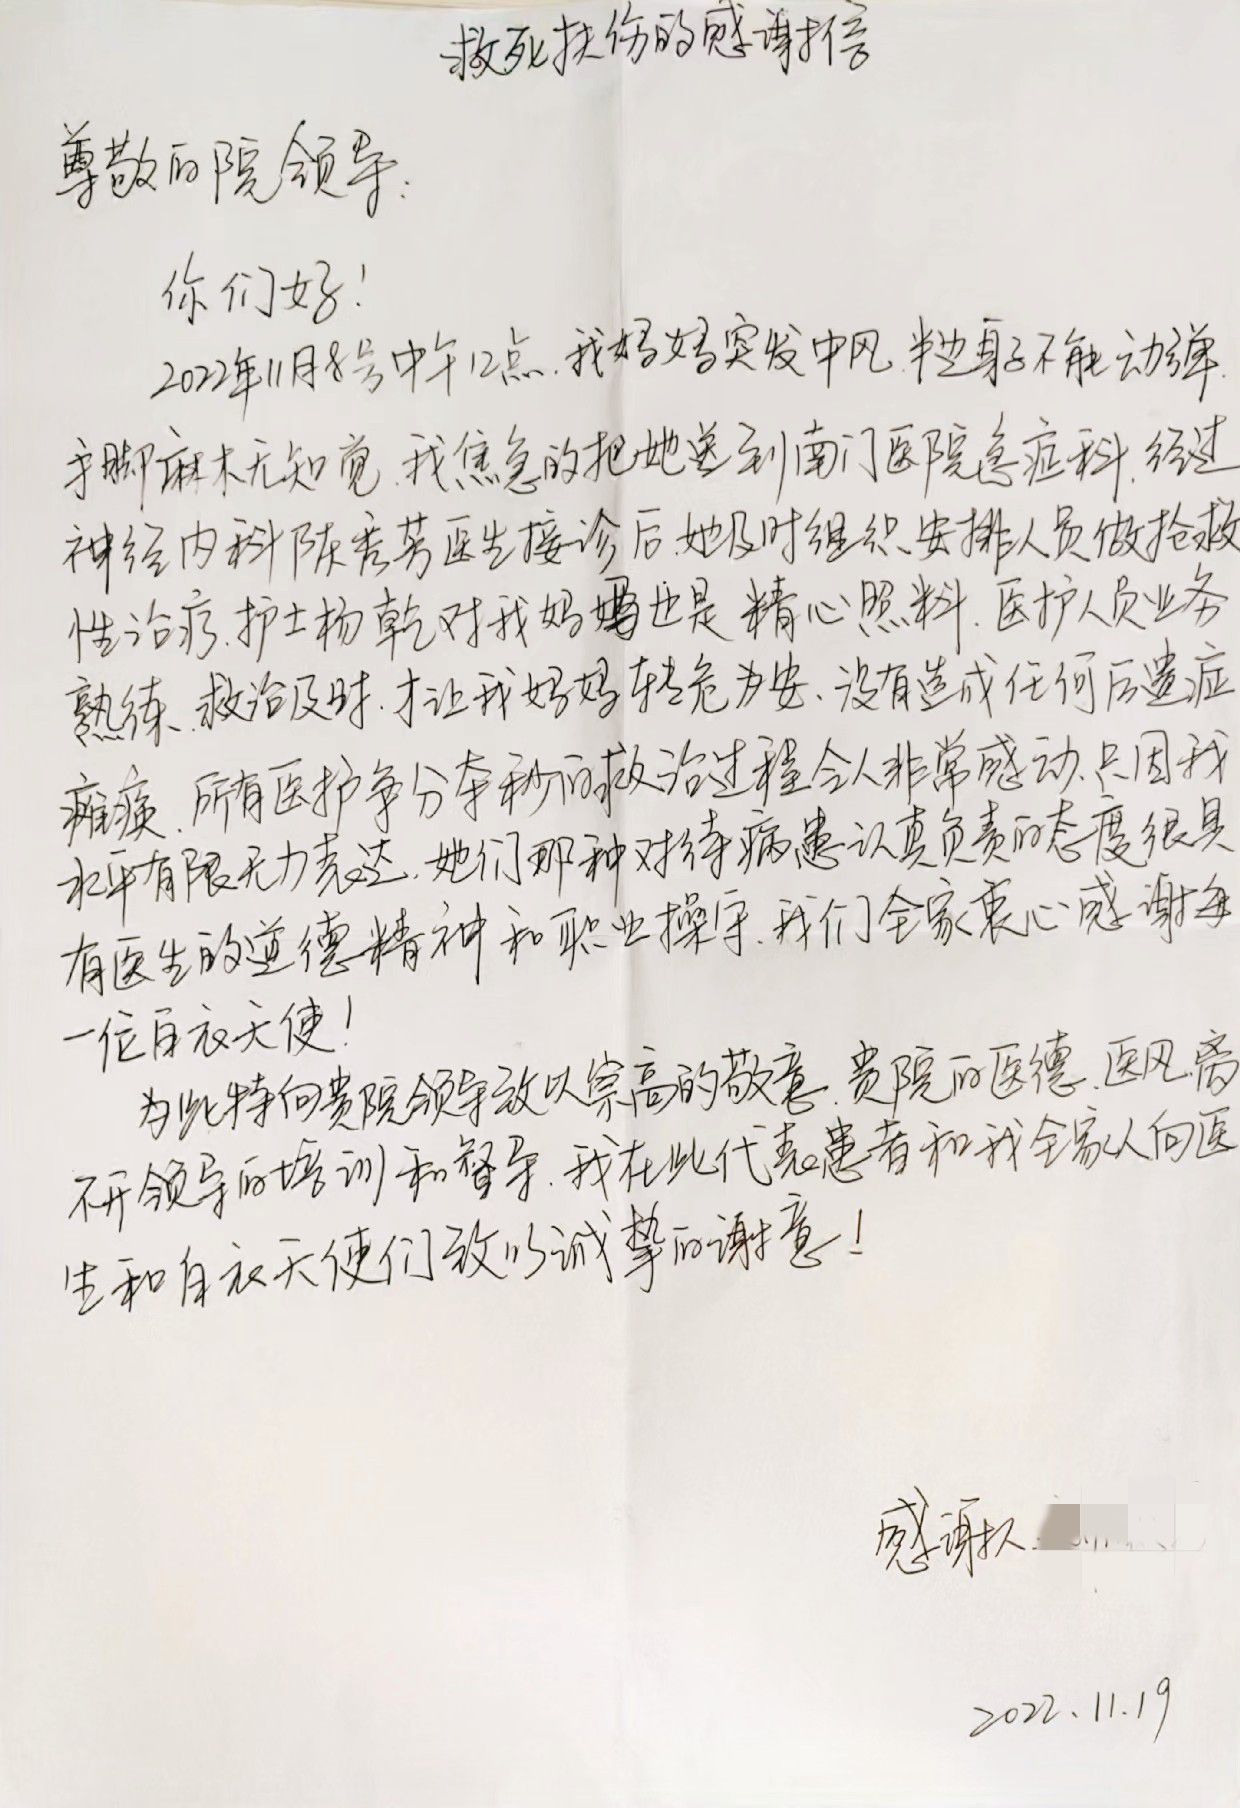 救死扶伤的感谢信
尊敬的院领导:
你们好!
2022年11月8号中午12点.我妈妈突发中风.半边身子不能动弹.
手脚麻木无知觉.我焦急的把她送到南门医院急症科.经过
神经内科陈秀芳医生接诊后.她及时组织、安排人员做抢救
性治疗.护士杨乾对我妈妈也是精心照料.医护人员业务
熟练、救治及时.才让我妈妈转危为安、没有造成任何后遗症
瘫痪.所有医护争分夺秒的救治过程令人非常感动.只因我
水平有限无力表达.她们那种对待病患认真负责的态度很具
有医生的道德精神和职业操守.我们全家衷心感谢每
一位白衣天使!
为此特向贵院领导致以崇高的敬意.贵院的医德、医风.离
不开领导的培训和督导.我在此代表患者和我全家人向医
生和白衣天使们致以诚挚的谢意!
感谢人
2022.11.19